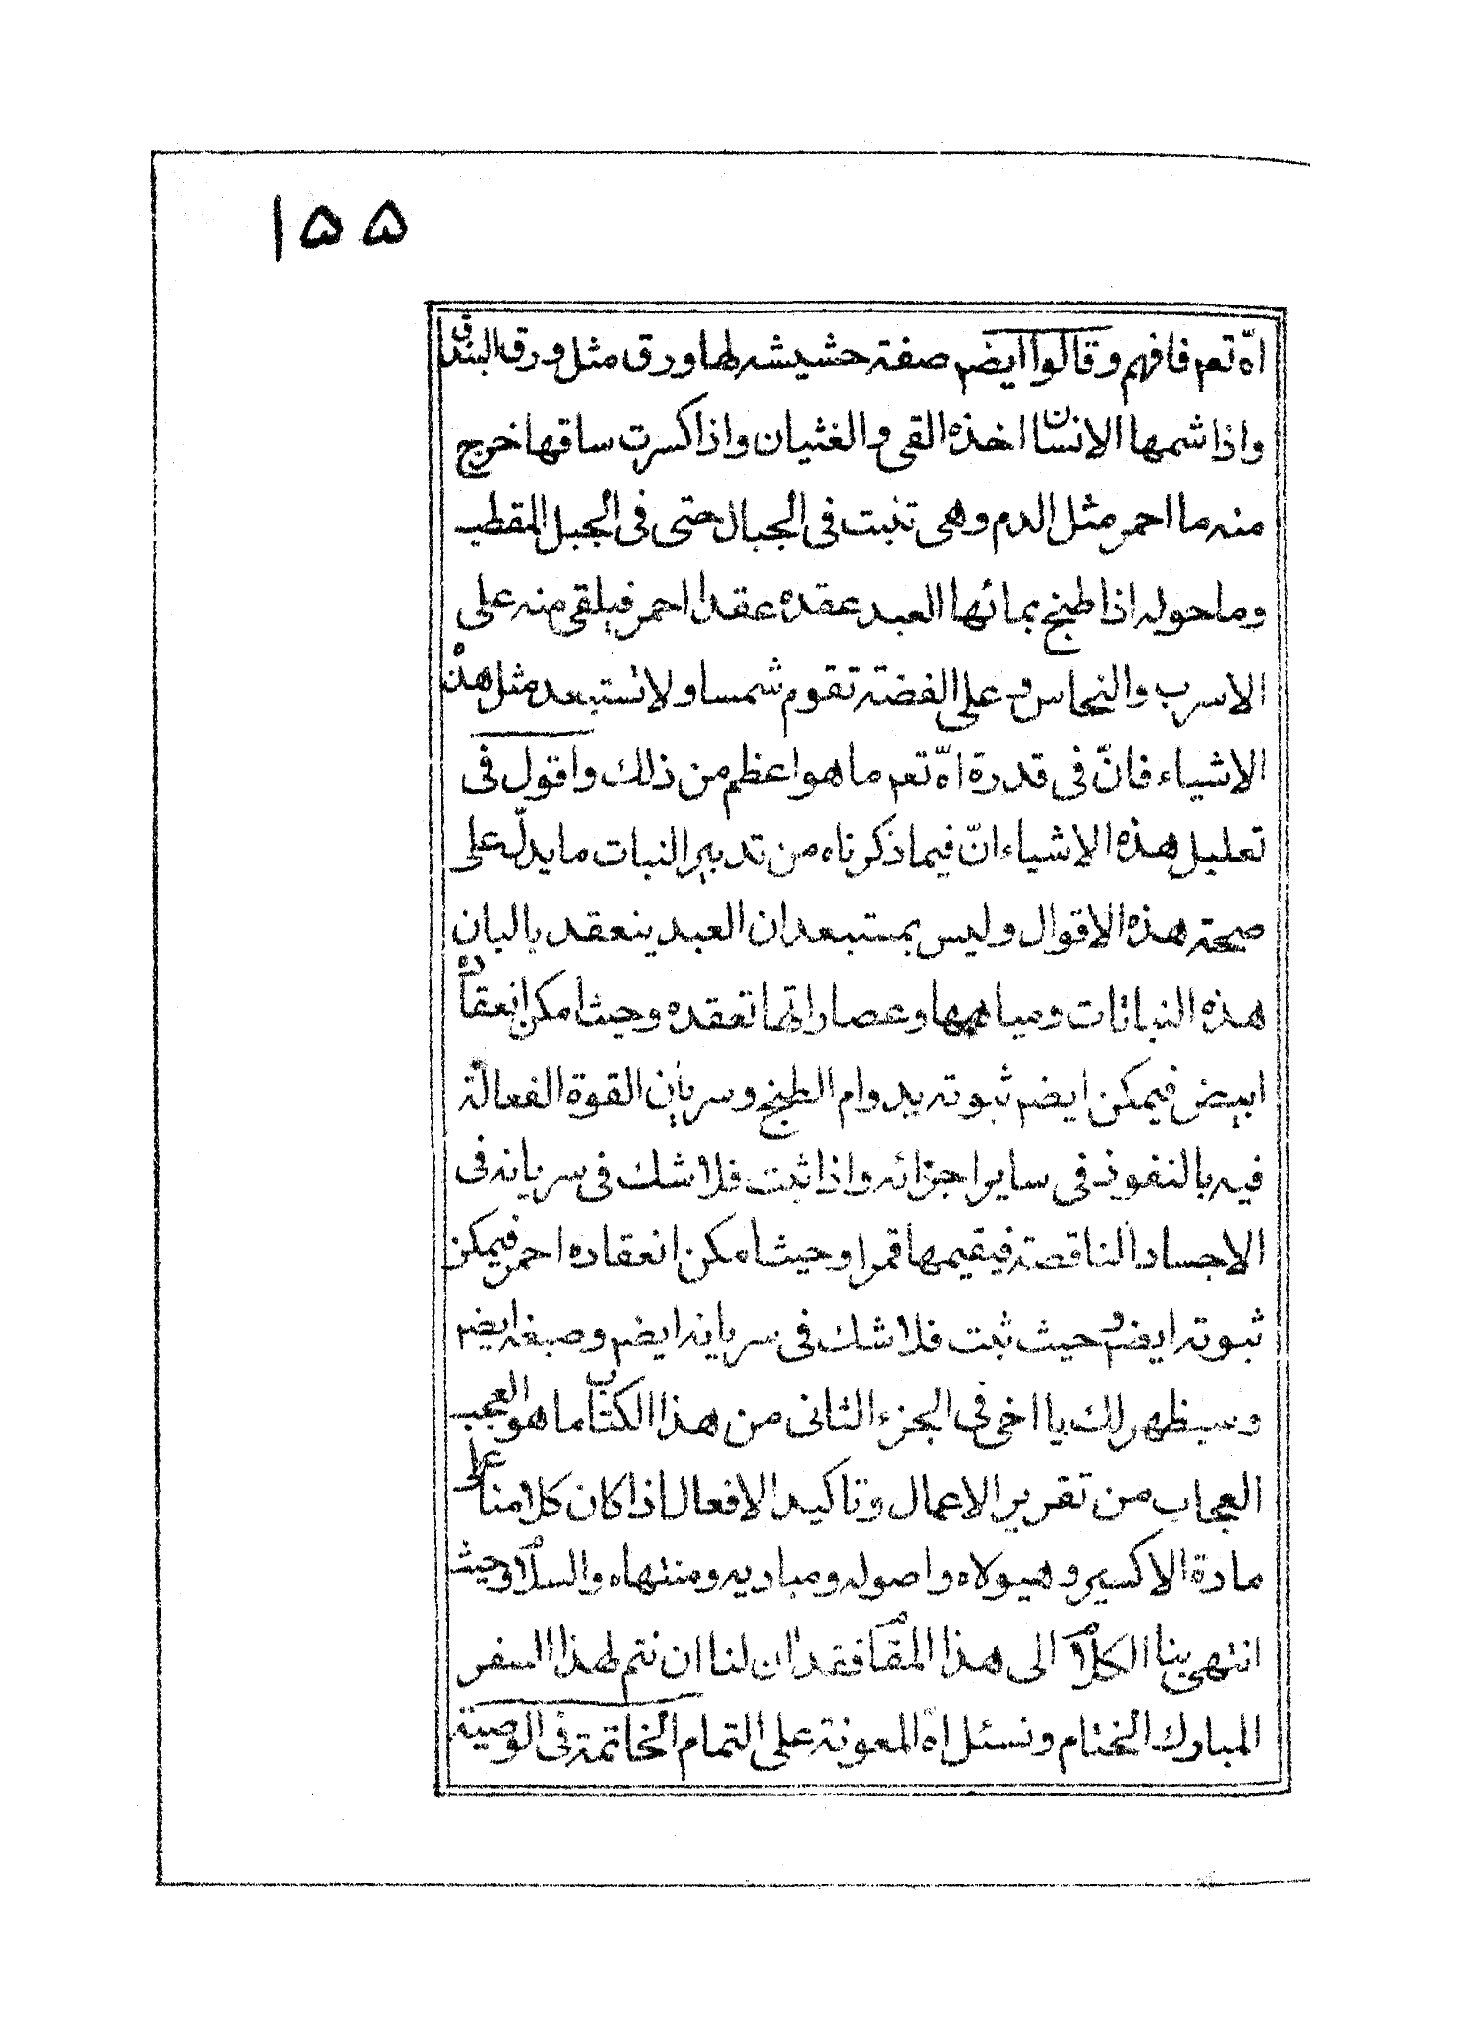 ١٥٥
اللّه تعم فافهم وقالوا ايضم صفته حشيشه لها ورق مثل ورق البندق
واذا شمها الانسان اخذه القى والغثيان واذا كسرت ساقها خرج
منه ما احمر مثل الدم وهى تنبت فى الجبال حتى فى الجبل المقطب
وما حوله اذا طبخ بمائها العبد عقده عقدا احمر فيلقى منه على
الاسرب والنحاس وعلى الفضته تقوم شمسا ولا تستبعد مثل هذه
الاشياء فانّ فى قدرة اللّه تعم ما هو اعظم من ذلك واقول فى
تعليل هذه الاشياء انّ فيما ذكرناه من تدبير النبات ما يدلّ على
صحته هذه الاقوال وليس بمستبعد ان العبد ينعقد بالبان
هذه النباتات ومياهها وعصاراتها تعقده وحيث امكن انعقاده
ابيض فيمكن ايضم ثبوته بدوام الطبخ وسريان القوة الفعالة
فيه بالنفوذ فى ساير اجزائه واذا ثبت فلا شك فى سريانه فى
الاجساد الناقصته فيقيمها قمرا وحيث امكن انعقاده احمر فيمكن
ثبوته ايضم وحيث ثبت فلا شك فى سريانه ايضم وصبغه ايضم
وسيظهر لك يا اخى فى الجزء الثانى من هذا الكتاب ما هو العجب
العجاب من تقرير الاعمال وتاكيد الافعال اذا كان كلامنا على
مادة الاكسير وهيولاه واصوله ومباديه ومنتهاه والسلام وحيث
انتهى بنا الكلام الى هذا المقام فقد ان لنا ان نتم لهذا السفر
المبارك الختام ونسئل اللّه المعونة على التمام الخاتمة فى الوصية